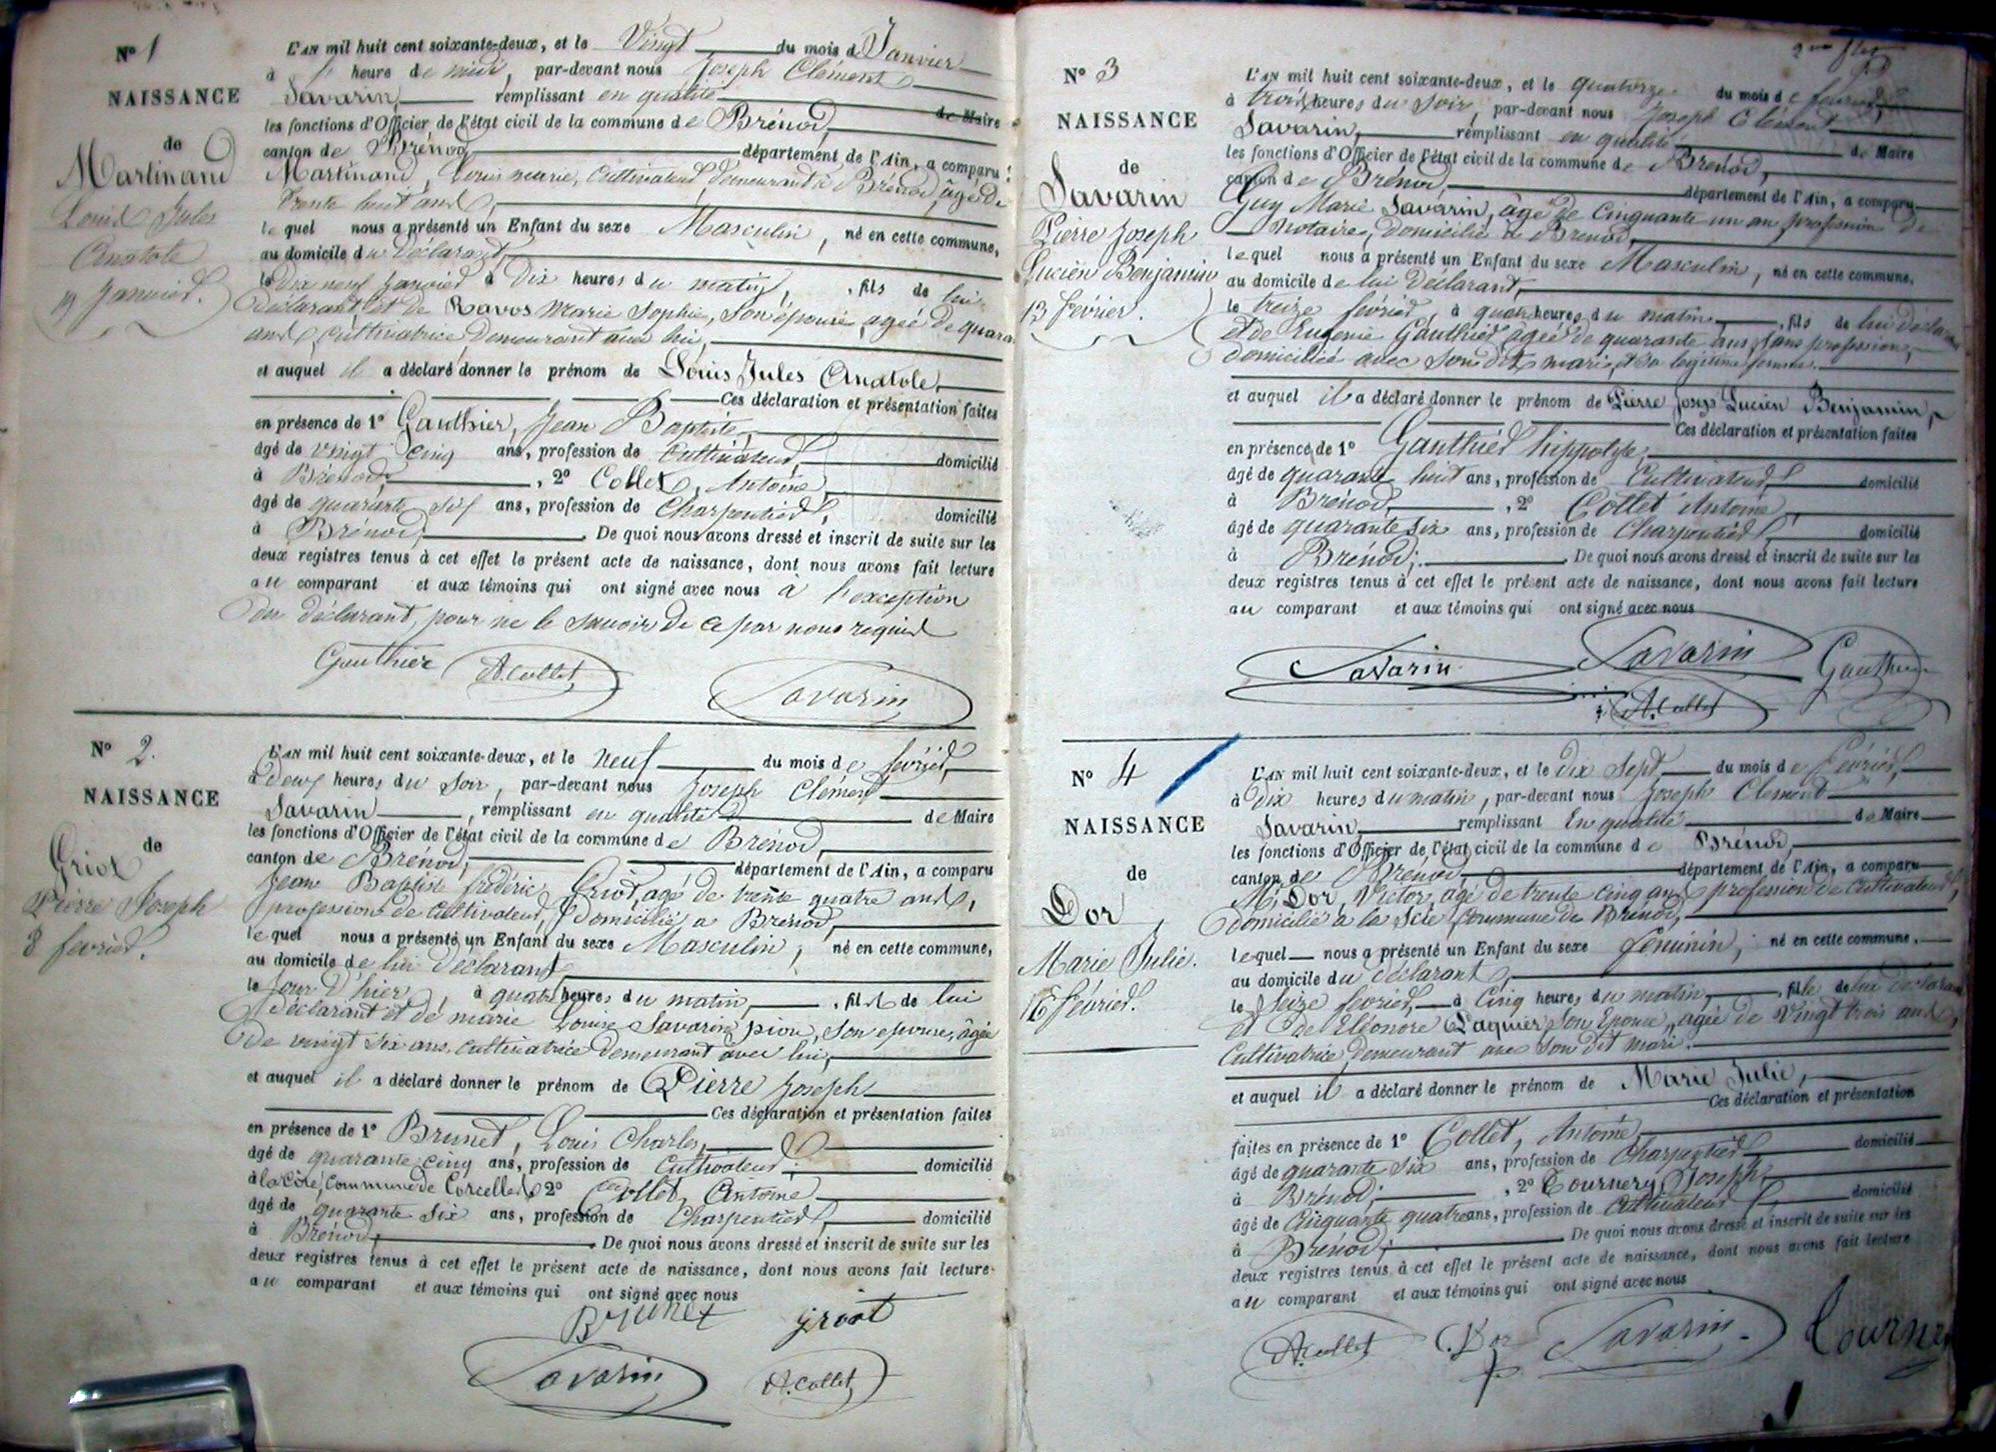 N° 1
NAISSANCE
de
Martinand
Louis Jules
Anatole
19 Janvier.
L'AN mil huit cent soixante-deux, et le Vingt du mois de Janvier
à heure de midi, par-devant nous Joseph Clément
Savarin, remplissant en qualité de Maire
les fonctions d'Officier de l'état civil de la commune de Brénod,
canton de Brénod, département de l'Ain, a comparu :
Martinand, Louis marie, Cultivateur demeurant à Brénod, âgé de
trente huit ans,
lequel nous a présenté un Enfant du sexe Masculin, né en cette commune,
au domicile du déclarant,
le dix neuf Janvier à Dix heures du matin, fils de lui
déclarant et de Ravos Marie Sophie, son épouse, agée de quara
ans, cultivatrice demeurant avec lui,
et auquel il a déclaré donner le prénom de Louis Jules Anatole,
Ces déclaration et présentation faites
en présence de 1° Gauthier, Jean Baptiste,
âgé de vingt cinq ans, profession de Cultivateur, domicilié
à Brénod, 2° Collet, Antoine,
âgé de quarante six ans, profession de Charpentier, domicilié
à Brénod, De quoi nous avons dressé et inscrit de suite sur les
deux registres tenus à cet effet le présent acte de naissance, dont nous avons fait lecture
au comparant et aux témoins qui ont signé avec nous à l'exception
du déclarant, pour ne le savoir de ce par nous requis
Gauthier A. Collet Savarin
N° 2.
NAISSANCE
de
Griot
Pierre Joseph
8 février.
L'AN mil huit cent soixante-deux, et le neuf du mois de février,
à deux heures du soir, par-devant nous Joseph Clément
Savarin, remplissant en qualité de Maire
les fonctions d'Officier de l'état civil de la commune de Brénod,
canton de Brénod, département de l'Ain, a comparu
Jean Baptiste frédéric Griot, agé de trente quatre ans,
profession de cultivateur, domicilié à Brénod,
lequel nous a présenté un Enfant du sexe Masculin, né en cette commune,
au domicile de lui déclarant,
le jour d'hier, à quatre heures du matin, fils de lui
déclarant et de marie Louise Savarin pion, son épouse, âgée
de vingt six ans, cultivatrice demeurant avec lui,
et auquel il a déclaré donner le prénom de Pierre Joseph
Ces déclaration et présentation faites
en présence de 1° Brunet, Louis Charles,
âgé de quarante cinq ans, profession de Cultivateur domicilié
à la Côte, Commune de Corcelles, 2° Collet, Antoine
âgé de quarante six ans, profession de Charpentier, domicilié
à Brénod, De quoi nous avons dressé et inscrit de suite sur les
deux registres tenus à cet effet le présent acte de naissance, dont nous avons fait lecture
au comparant et aux témoins qui ont signé avec nous
Brunet griot
Savarin A. Collet
N° 3
NAISSANCE
de
Savarin
Pierre Joseph
Lucien Benjamin
13 février.
L'AN mil huit cent soixante-deux, et le quatorze du mois de février,
à trois heures du soir, par-devant nous Joseph Clément
Savarin, remplissant en qualité de Maire
les fonctions d'Officier de l'état civil de la commune de Brénod,
canton de Brénod, département de l'Ain, a comparu
Guy Marie Savarin, âgé de cinquante un an profession de
notaire, domicilié à Brénod,
lequel nous a présenté un Enfant du sexe Masculin, né en cette commune,
au domicile de lui déclarant,
le treize février, à quatre heures du matin, fils de lui déclarant
et de Eugenie Gauthier agée de quarante ans, sans profession,
domiciliée avec son dit mari, et sa légitime femme.
et auquel il a déclaré donner le prénom de Pierre Josep Lucien Benjamin,
Ces déclaration et présentation faites
en présence de 1° Gauthier hippolyte,
âgé de quarante huit ans, profession de Cultivateur, domicilié
à Brénod, 2° Collet Antoine,
âgé de quarante six ans, profession de Charpentier, domicilié
à Brénod; De quoi nous avons dressé et inscrit de suite sur les
deux registres tenus à cet effet le présent acte de naissance, dont nous avons fait lecture
au comparant et aux témoins qui ont signé avec nous
Savarin Savarin Gauthier
A. Collet
N° 4
NAISSANCE
de
Dor
Marie Julie.
16 février.
L'AN mil huit cent soixante-deux, et le dix sept du mois de Février,
à dix heures du matin, par-devant nous Joseph Clément
Savarin, remplissant En qualité de Maire
les fonctions d'Officier de l'état civil de la commune de Brénod,
canton de Brénod, département de l'Ain, a comparu
Mr. Dor, Victor, agé de trente cinq ans profession de cultivateur,
domicilié à la Scie, commune de Brénod,
lequel nous a présenté un Enfant du sexe féminin, né en cette commune,
au domicile du déclarant,
le seize février, à Cinq heures du matin, fille de lui déclarant
et de Eléonore Paquier son Epouse, agée de Vingt trois ans,
Cultivatrice, demeurant avec son dit mari.
et auquel il a déclaré donner le prénom de Marie Julie,
Ces déclaration et présentation
faites en présence de 1° Collet, Antoine, domicilié
âgé de quarante six ans, profession de Charpentier
à Brénod; 2° Tournery, Joseph,
âgé de Cinquante quatre ans, profession de Cultivateur domicilié
à Brénod; De quoi nous avons dressé et inscrit de suite sur les
deux registres tenus à cet effet le présent acte de naissance, dont nous avons fait lecture
au comparant et aux témoins qui ont signé avec nous
A. Collet Dor Savarin Tourne